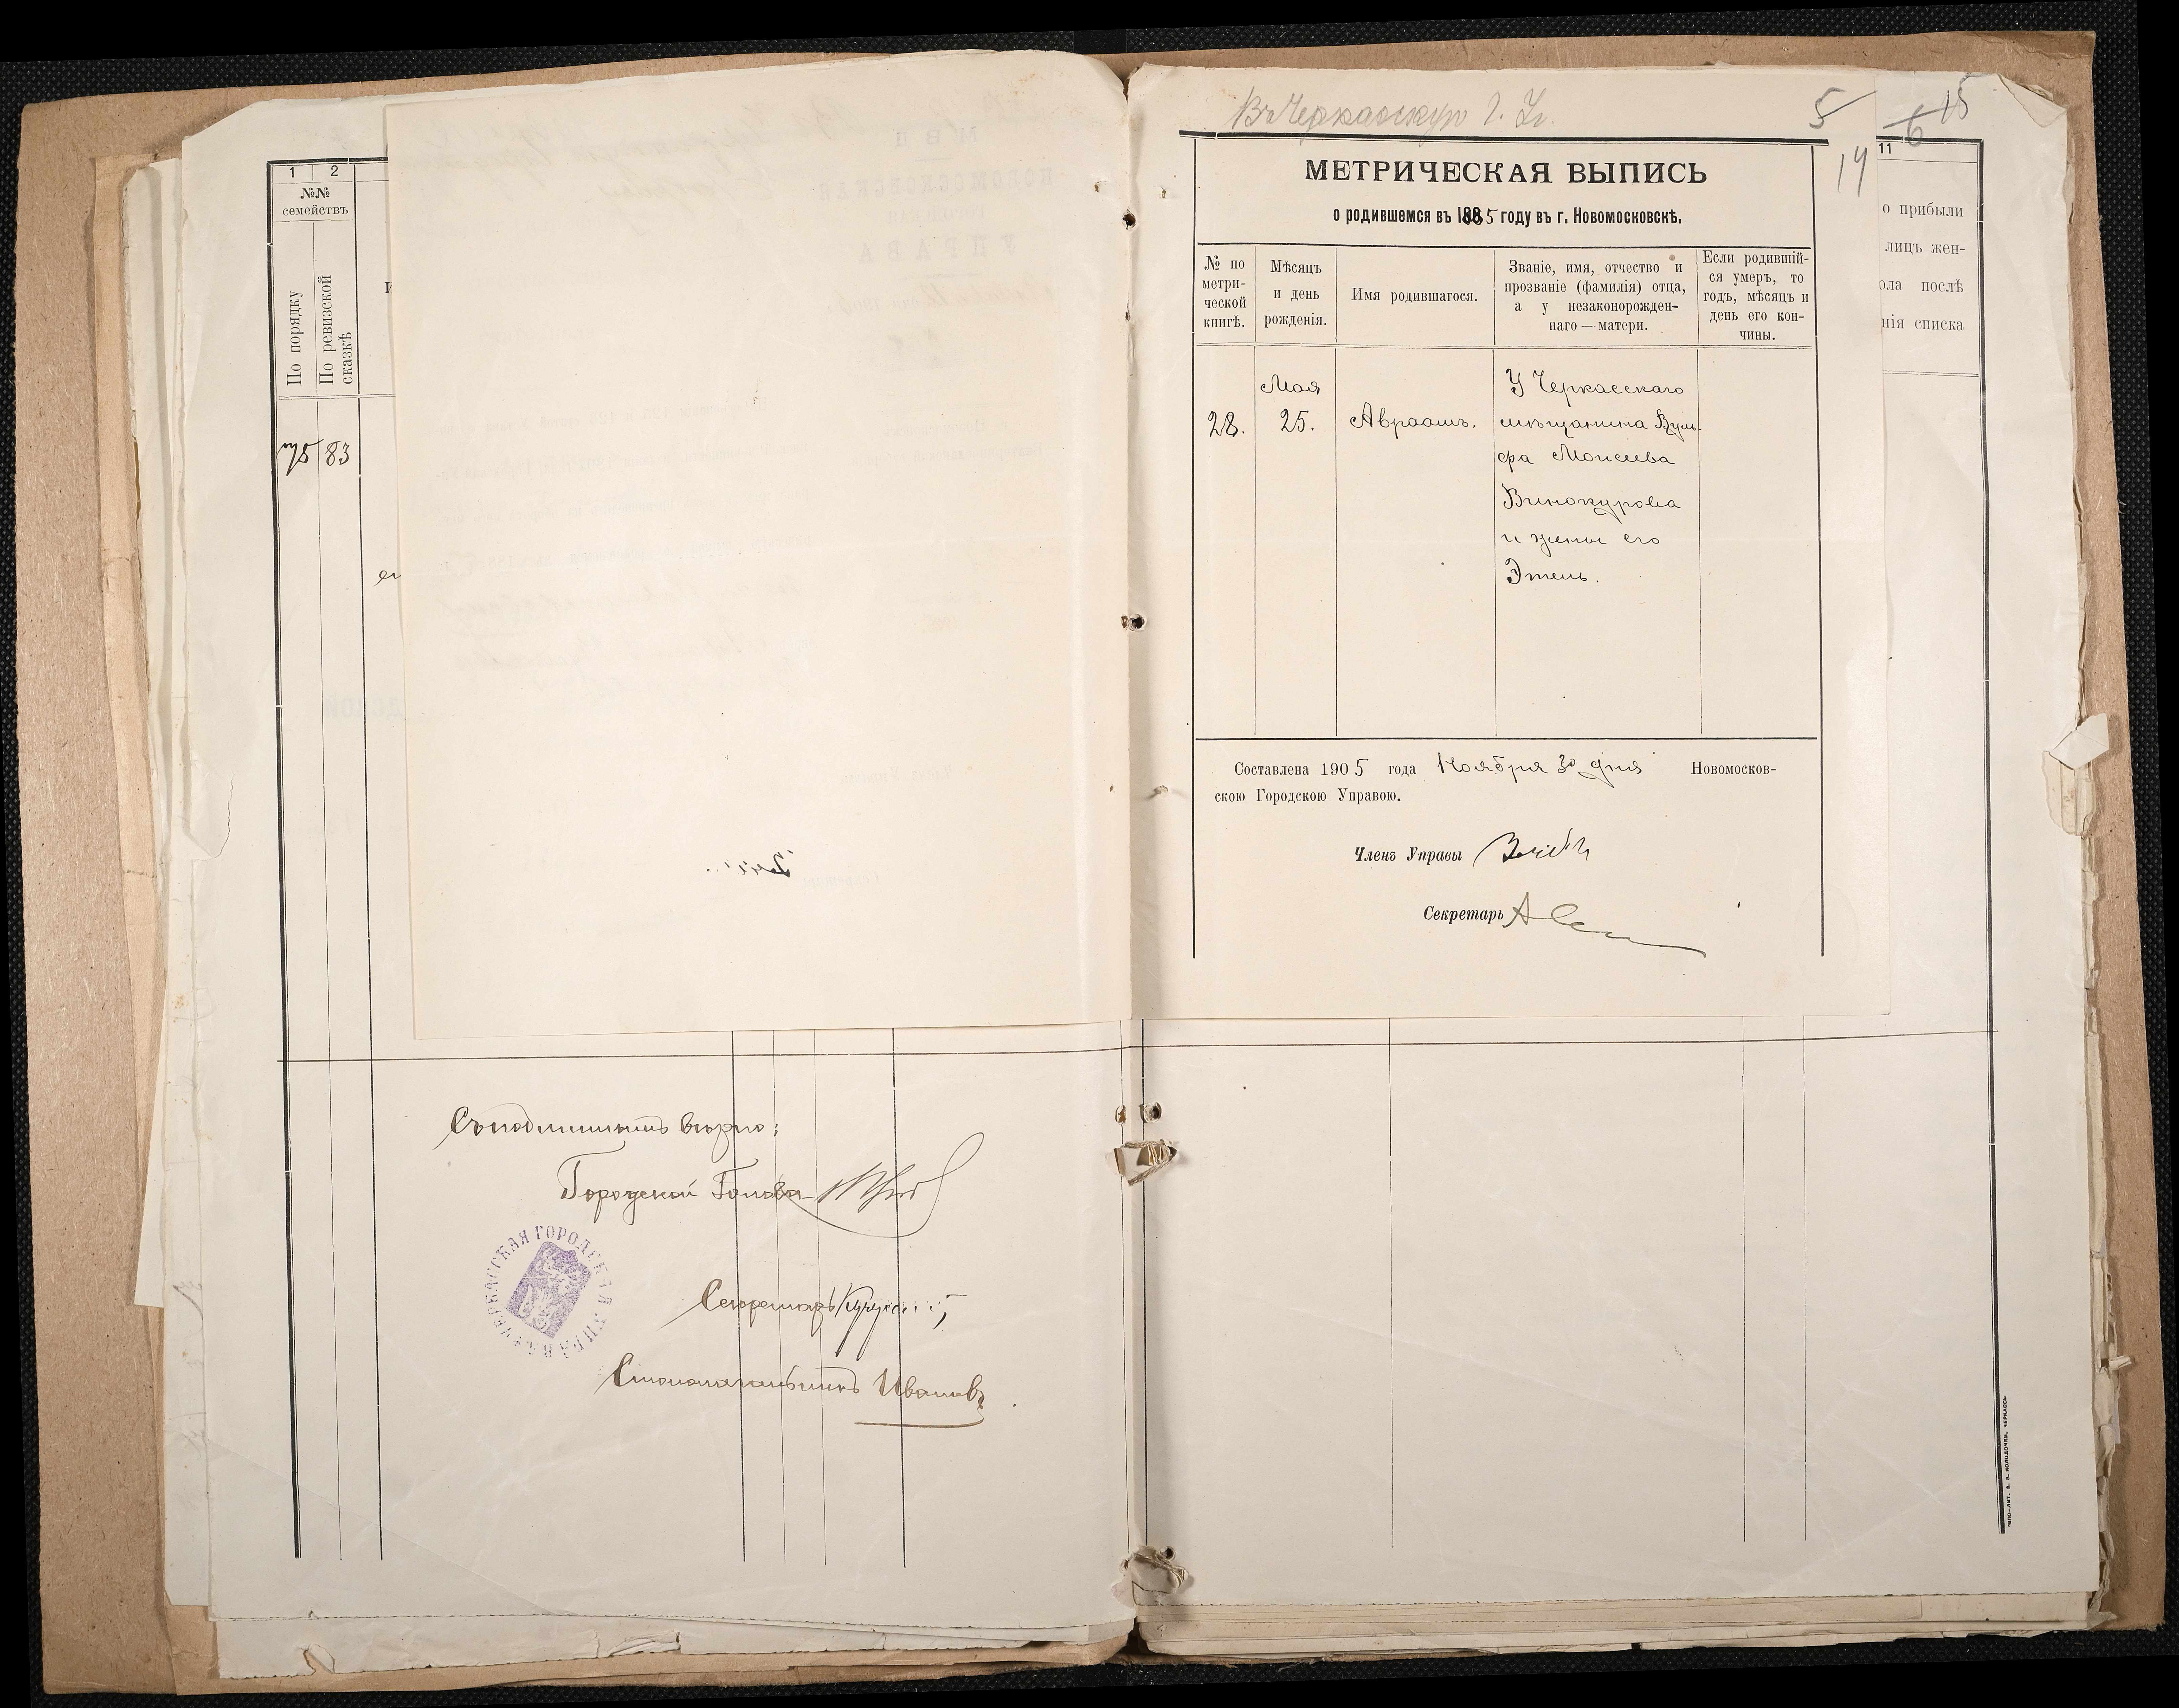 1
2
№№
семействъ
По порядку
По ревизской
сказкѣ
83
Съ подлиннымъ вѣрно:
Городской Голова
ЧЕРКАССКАЯ ГОРОДСКАЯ УПРАВА
Секретарь
Столоначальникъ Ивановъ
Въ Черкасскую Г. Уп.
5
6
15
14
МЕТРИЧЕСКАЯ ВЫПИСЬ
о родившемся въ 1885 году въ г. Новомосковскѣ.
№ по
метри-
ческой
книгѣ.
Мѣсяцъ
и день
рожденія.
Имя родившагося.
Званіе, имя, отчество и
прозваніе (фамилія) отца,
а у незаконорожден-
наго — матери.
Если родившій-
ся умеръ, то
годъ, мѣсяцъ и
день его кон-
чины.
28.
Мая
25.
Авраамъ.
У Черкасскаго
мѣщанина Вуль-
фа Моисеева
Винокурова
и жены его
Этель.
Составлена 1905 года Ноября 30 дня Новомосков-
скою Городскою Управою.
Членъ Управы
Секретарь
11
о прибыли
лицъ жен-
ола послѣ
нія списка